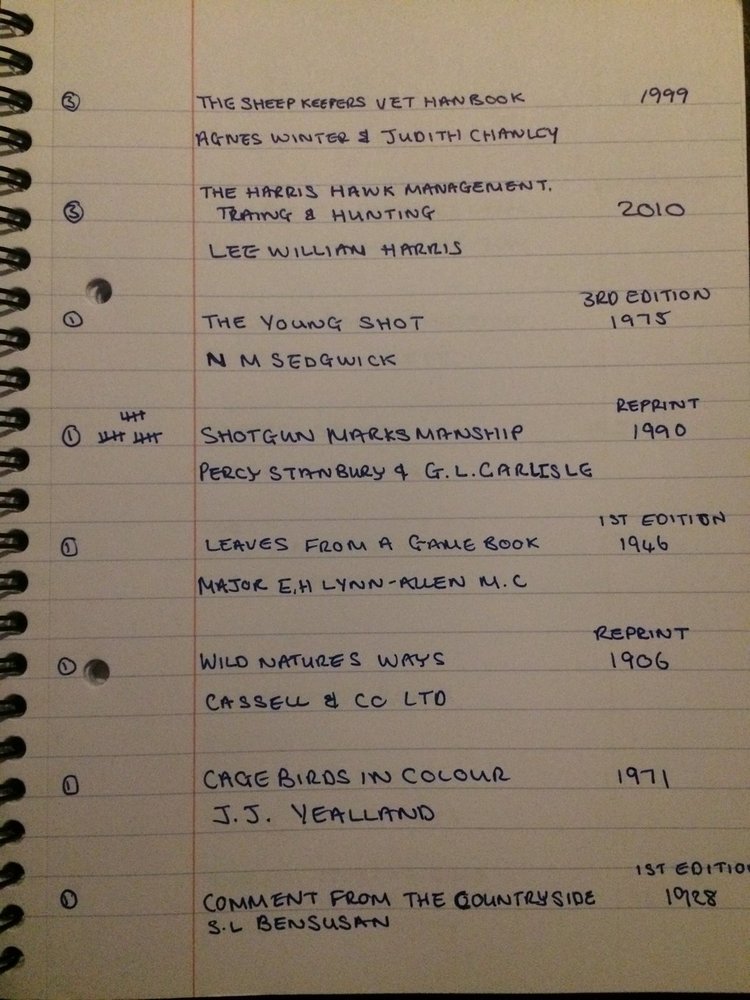 ③ THE SHEEP KEEPERS VET HANBOOK 1999
AGNES WINTER & JUDITH CHANLEY
THE HARRIS HAWK MANAGEMENT.
③ TRAING & HUNTING 2010
LEE WILLIAN HARRIS
3RD EDITION
① THE YOUNG SHOT 1975
N M SEDGWICK
REPRINT
① SHOTGUN MARKSMANSHIP 1990
PERCY STANBURY & G.L.CARLISLE
1ST EDITION
① LEAVES FROM A GAME BOOK 1946
MAJOR E.H LYNN-ALLEN M.C
REPRINT
① WILD NATURES WAYS 1906
CASSELL & CO LTD
① CAGE BIRDS IN COLOUR 1971
J.J. YEALLAND
1ST EDITIO
① COMMENT FROM THE COUNTRYSIDE 1928
S.L BENSUSAN